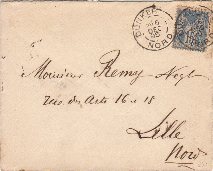 DUNKERQUE
NORD
Monsieur Remy-Vogt
rue des Arts 16 & 18
Lille
Nord